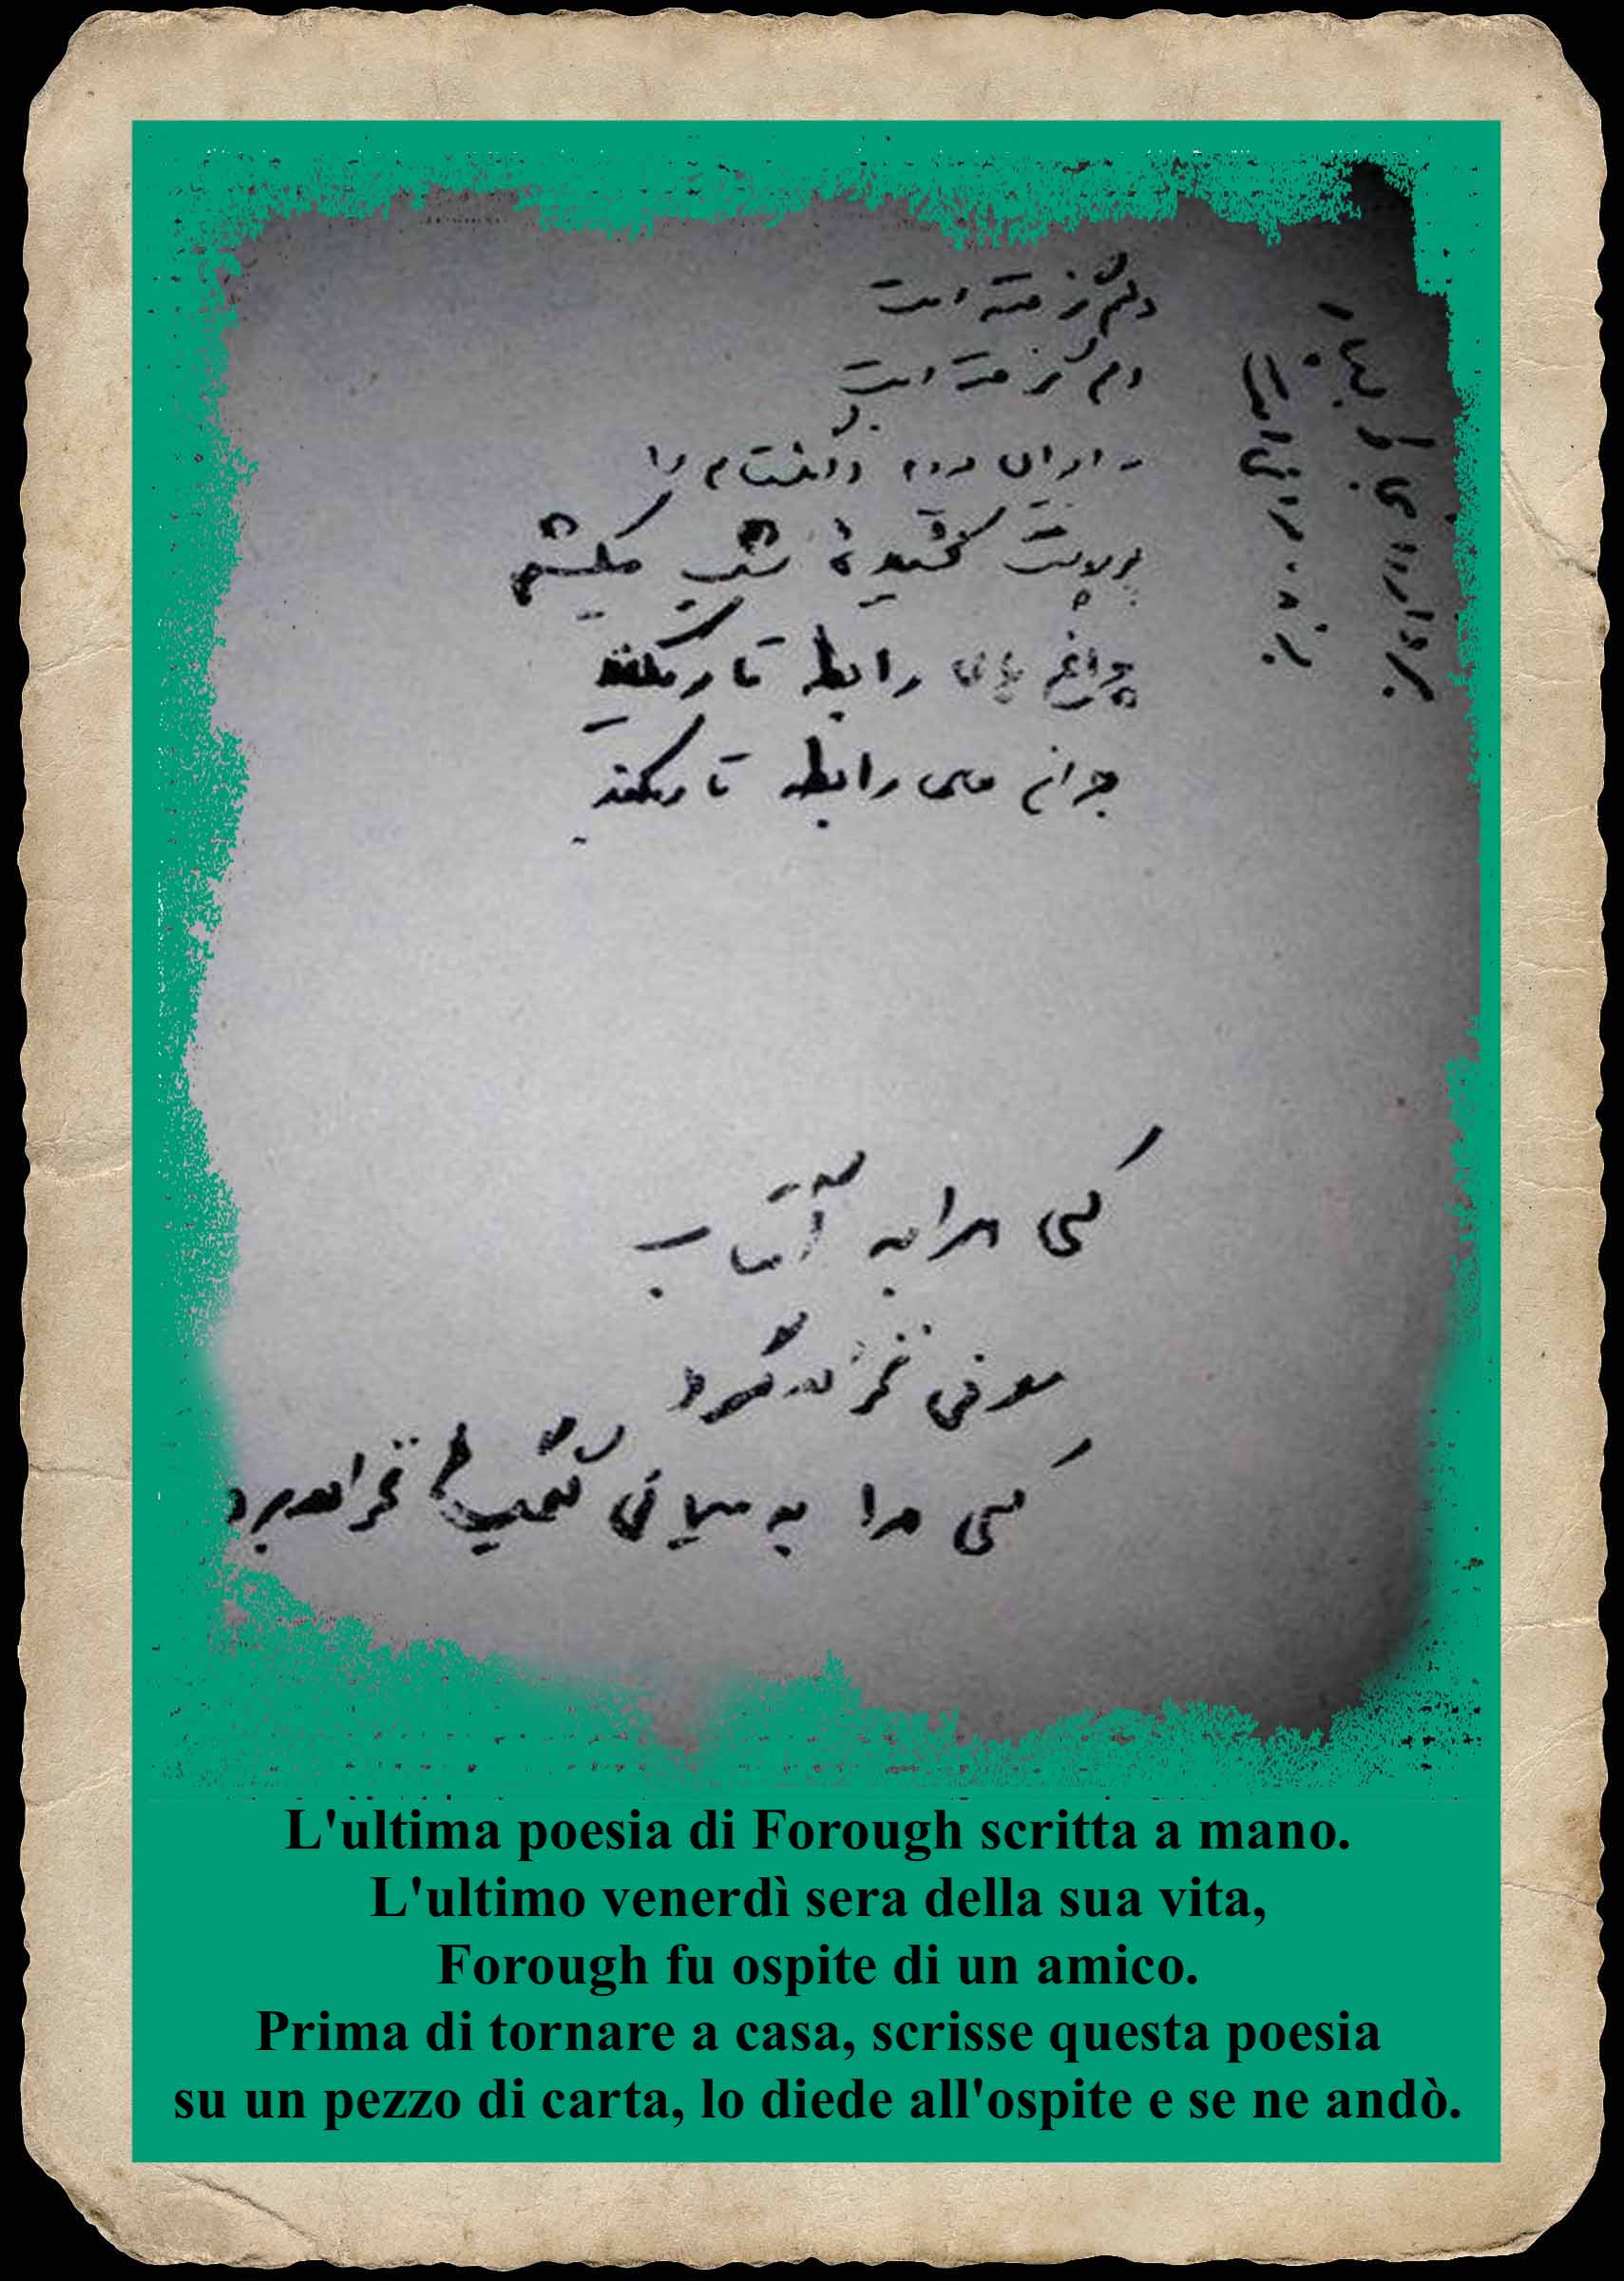 دلم گرفته است
دلم گرفته است
به ایوان میروم و انگشتانم را
بر پوست کشیدهٔ شب میکشم
چراغ های رابطه تاریکند
چراغ های رابطه تاریکند
کسی مرا به آفتاب
معرفی نخواهد کرد
کسی مرا به میهمانی گنجشک ها نخواهد برد
پرواز را بخاطر بسپار
پرنده مردنی است
L'ultima poesia di Forough scritta a mano.
L'ultimo venerdì sera della sua vita,
Forough fu ospite di un amico.
Prima di tornare a casa, scrisse questa poesia
su un pezzo di carta, lo diede all'ospite e se ne andò.